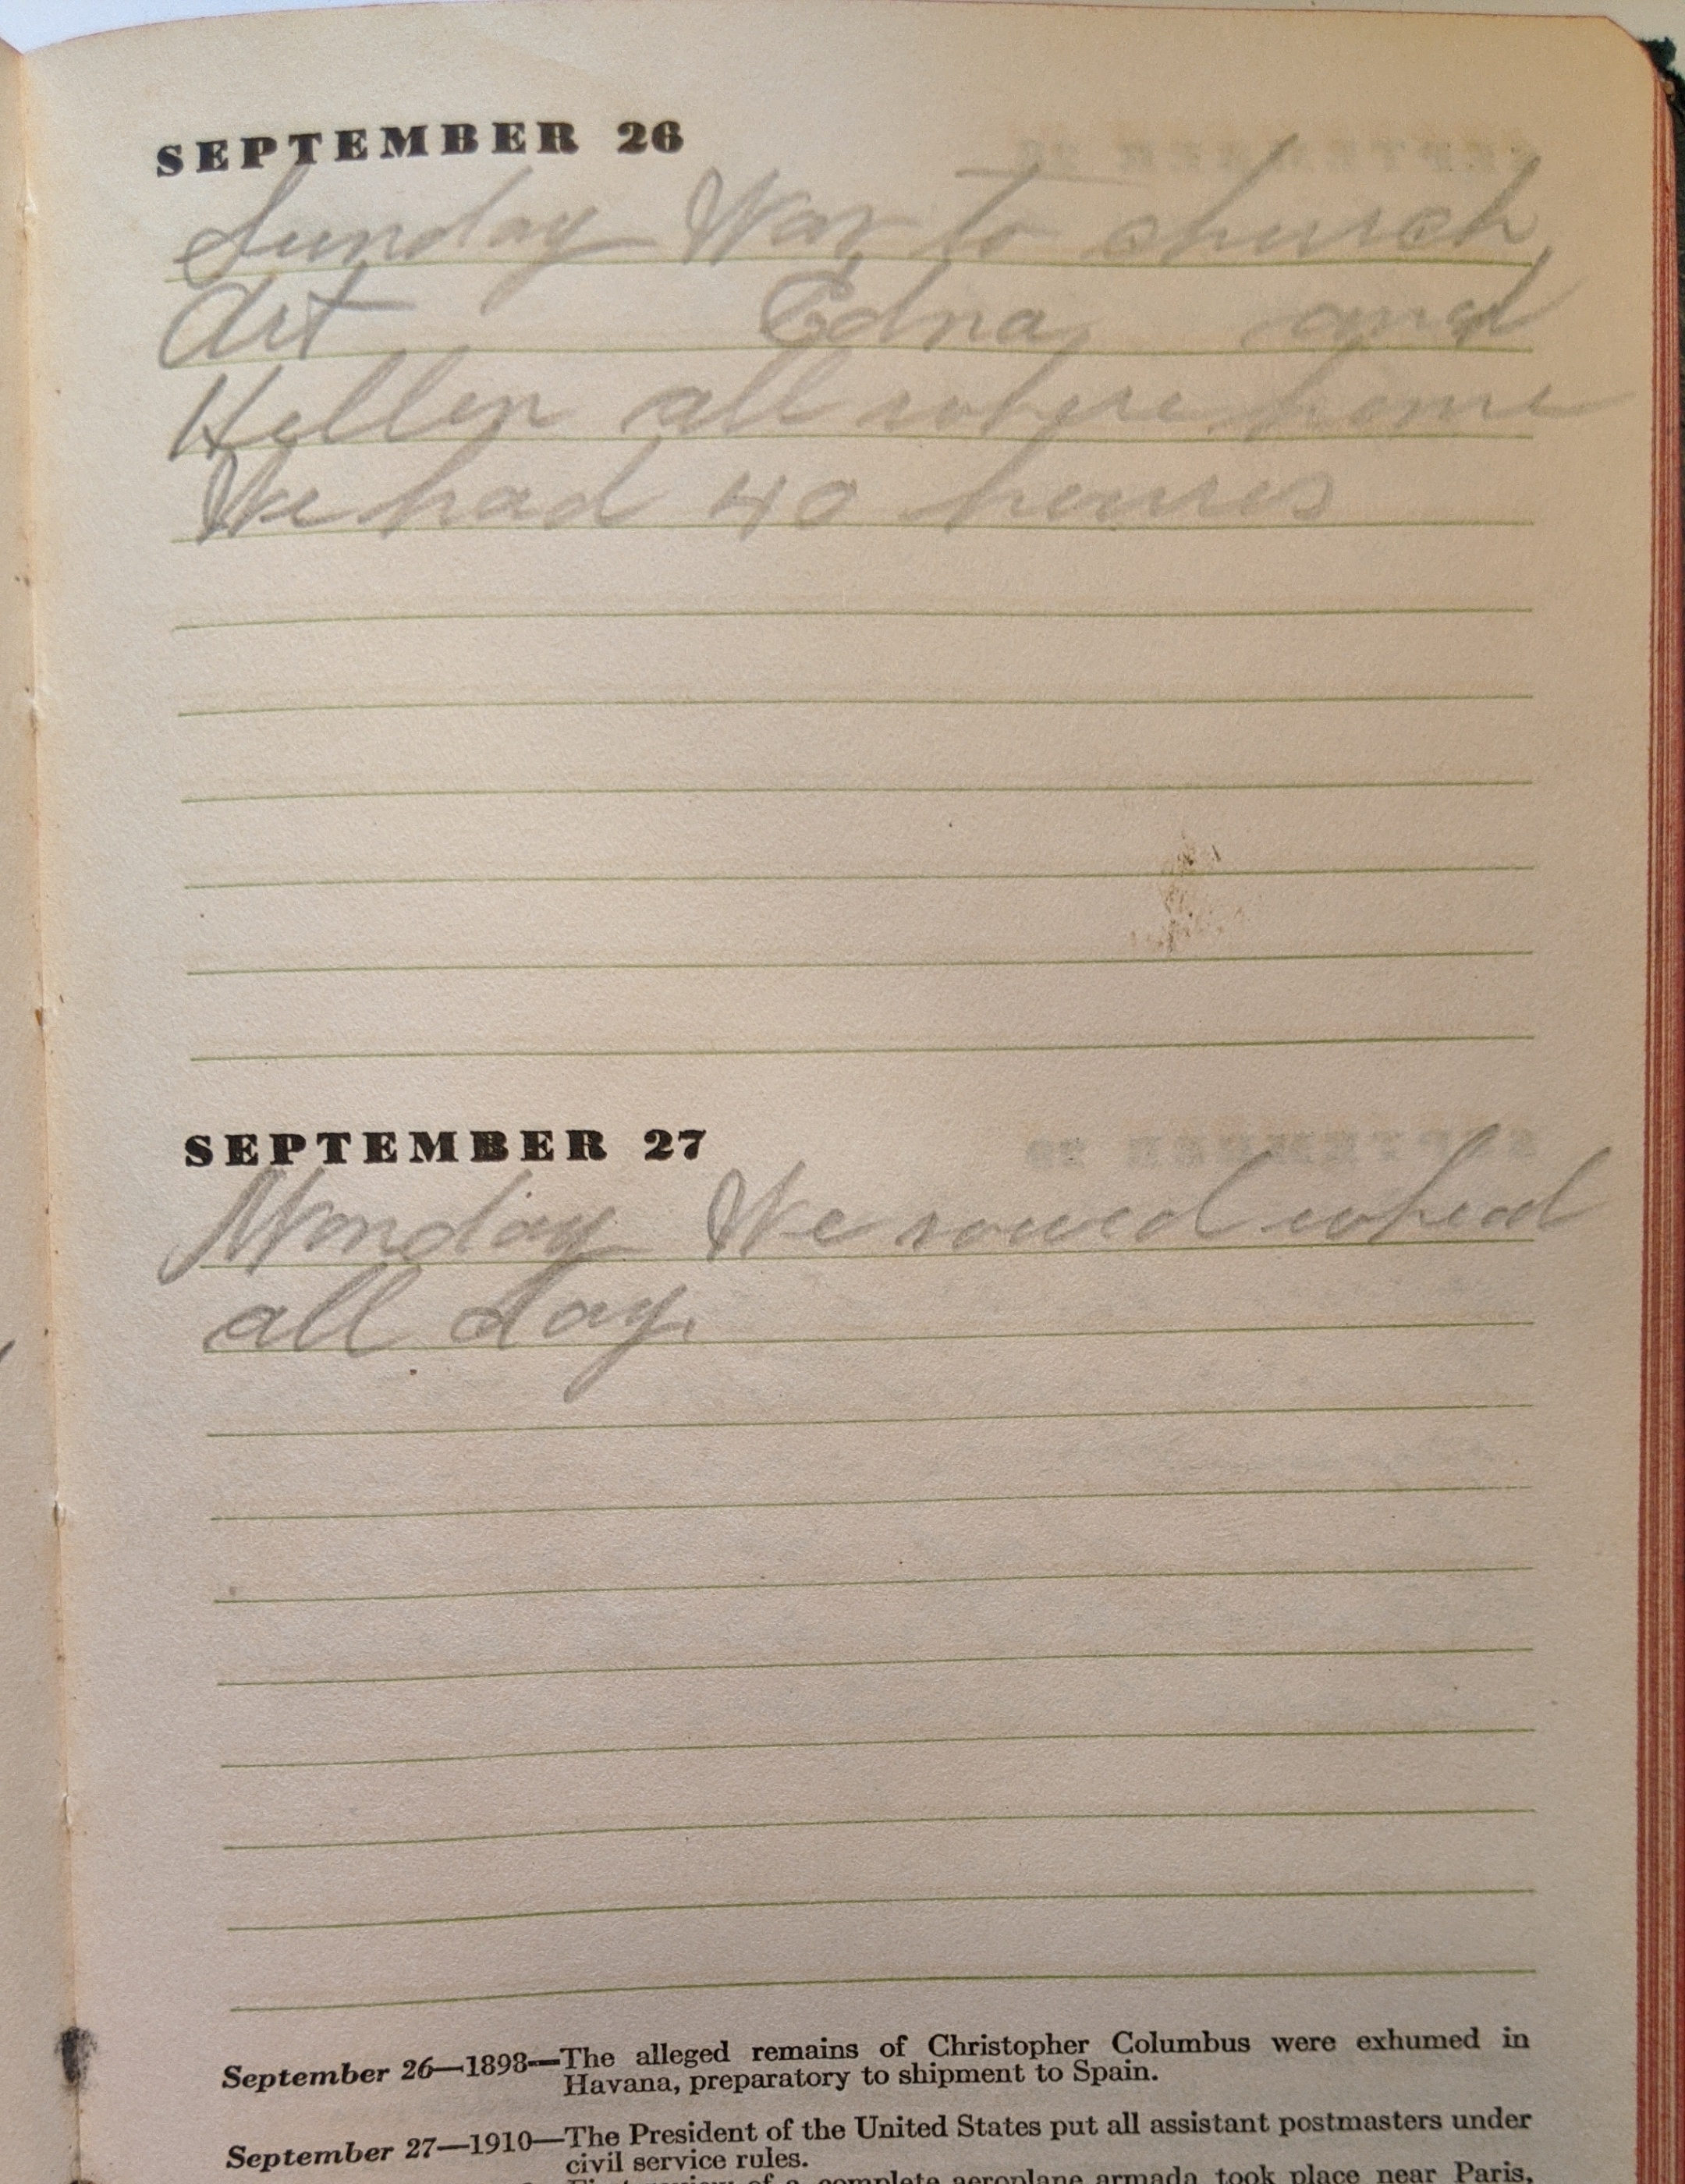 SEPTEMBER 26
Sunday Was to church
Art Edna and
Hellen all where home
We had 40 houres
SEPTEMBER 27
Monday We sowed whed
all day.
September 26—1898—The alleged remains of Christopher Columbus were exhumed in
Havana, preparatory to shipment to Spain.
September 27—1910—The President of the United States put all assistant postmasters under
civil service rules.
First review of a complete aeroplane armada took place near Paris,